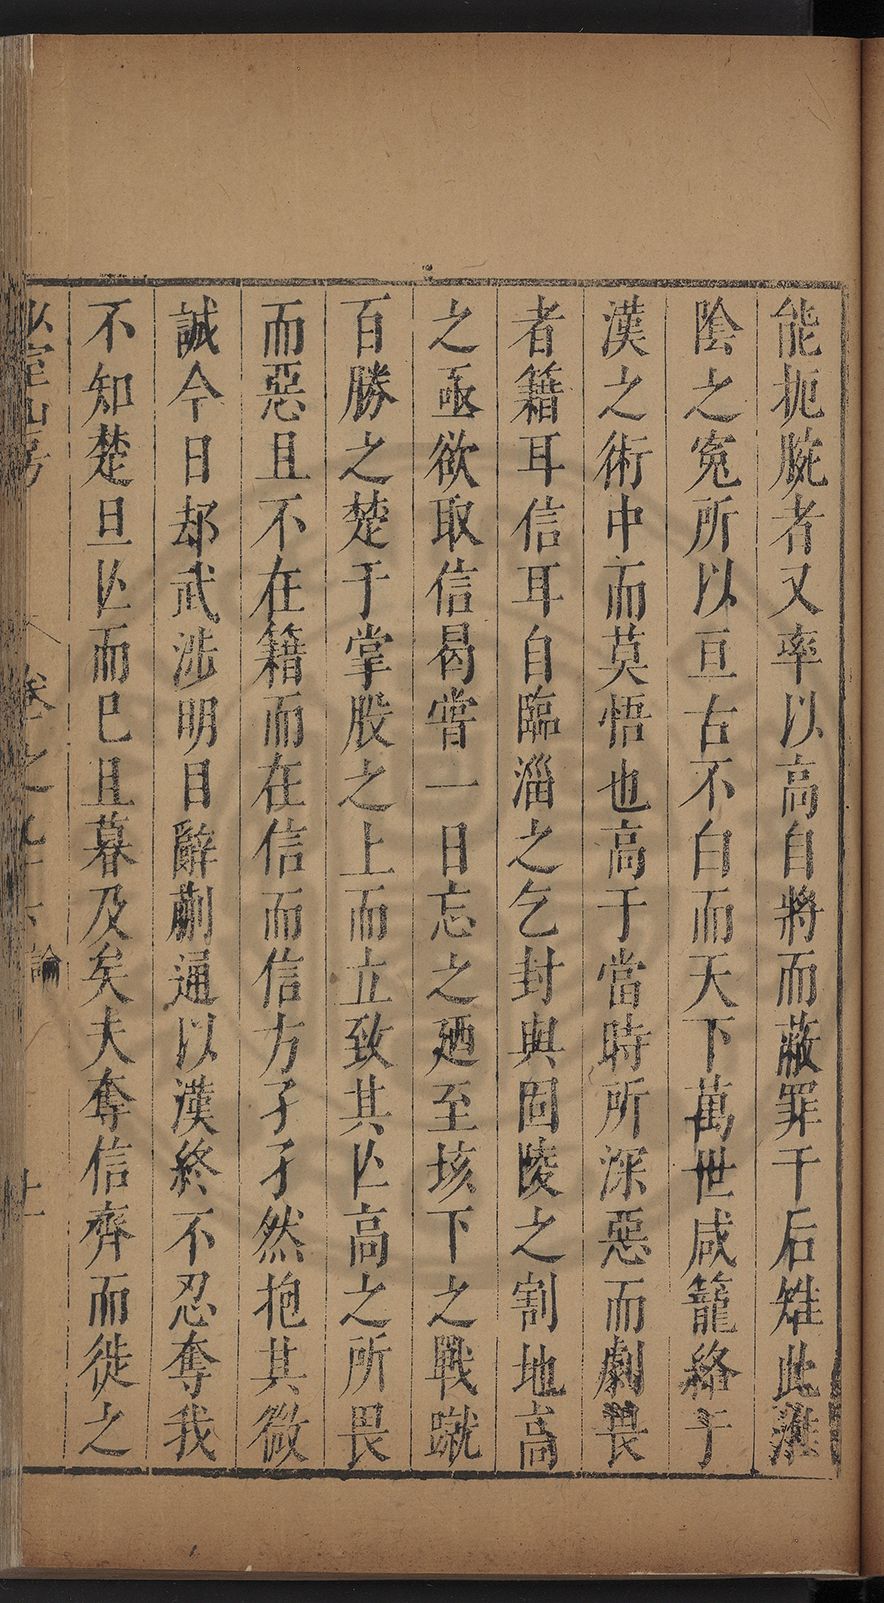 能扼腕者又率以高自將而蔽罪于后雉此淮
陰之冤所以亘古不白而天下萬世咸籠絡于
漢之術中而莫悟也高于當時所深惡而劇畏
者籍耳信耳自臨淄之乞封與固陵之割地高
之亟欲取信曷嘗一日忘之廼至垓下之戰蹴
百勝之楚于掌股之上而立致其亾高之所畏
而惡且不在籍而在信而信方孑孑然抱其微
誠今日却武涉明日辭蒯通以漢終不忍奪我
不知楚旦亾而巳且暮及矣夫奪信齊而徙之
少室山房
卷之九十六 論
十一